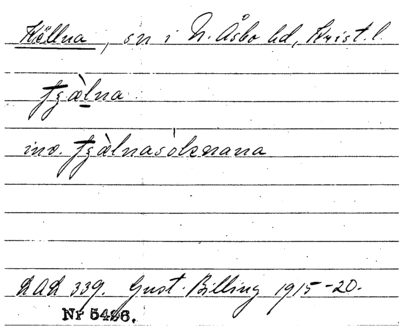 Källna, sn i N. Åsbo hd, Krist. l.
tjälna
inv. tjälnasoknana
DAL 339. Gust. Billing 1915-20.
Nr 5486.